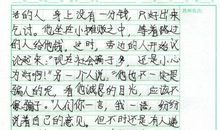 苦的人，身上没有一分钱，只好出来
乞讨。他坐在小摊贩之中，等着路过
的人给他钱。这时，旁边的人开始议
论起来：“现在社会骗子多，还是小心
为好啊！”另一个人说：“他也不一定是
骗人的吧，看他诚恳的目光，应该不
像骗子。”人们你一言，我一语，纷纷
说着自己的意见，但不时还是有人递